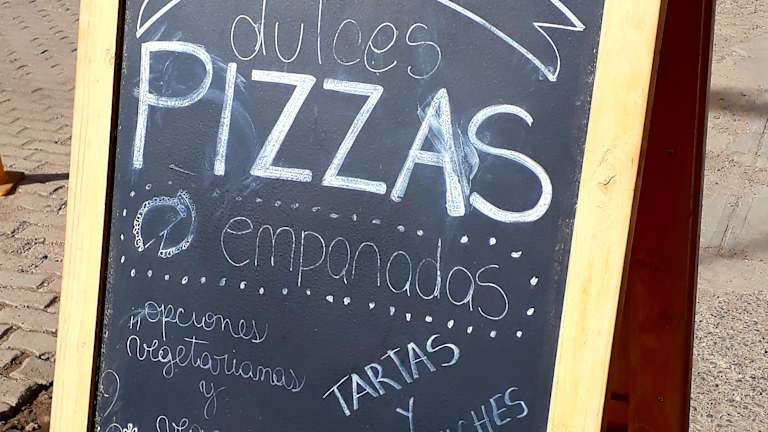 dulces
PIZZAS
empanadas
"opciones
vegetarianas
y
TARTAS
Y